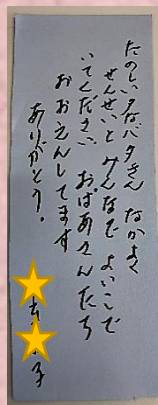 たのしい名バタさん なかよく
せんせいと みんなで よいこで
いてください おばあさんたち
おおえんしてます
ありがとう。
子